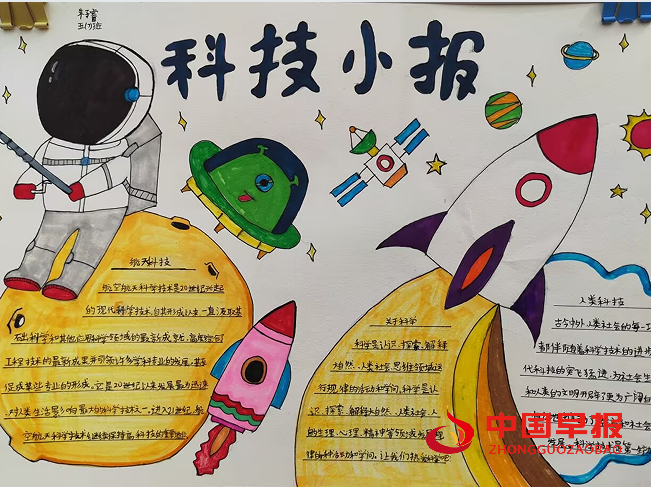 科技小报
五(7)班
航天科技
航空航天科学技术是20世纪兴起
的现代科学技术,自其形成以来一直汲取基
础科学和其他应用科学领域的最新成就,高度综合
工程技术的最新成果并引领许多学科专业的发展,甚至
促成某些专业的形成。它是20世纪以来发展最为迅速
对人类生活影响最大的科学技术之一。进入21世纪,航
空航天科学技术
关于科学
科学是认识、探索、解释
自然、人类社会、思维领域运
行规律的活动和学问。科学是认
识、探索、解释大自然、人类社会、人
的生理、心理、精神等领域
律的活动和学问。让我们热爱科学吧
人类科技
古今中外人类社会的每一项
都伴随着科学技术的进步
代科技的突飞猛进,为社会生
和人类的文明开辟了更为广阔
和社会
发展
中国早报
ZHONGGUOZAOBAO